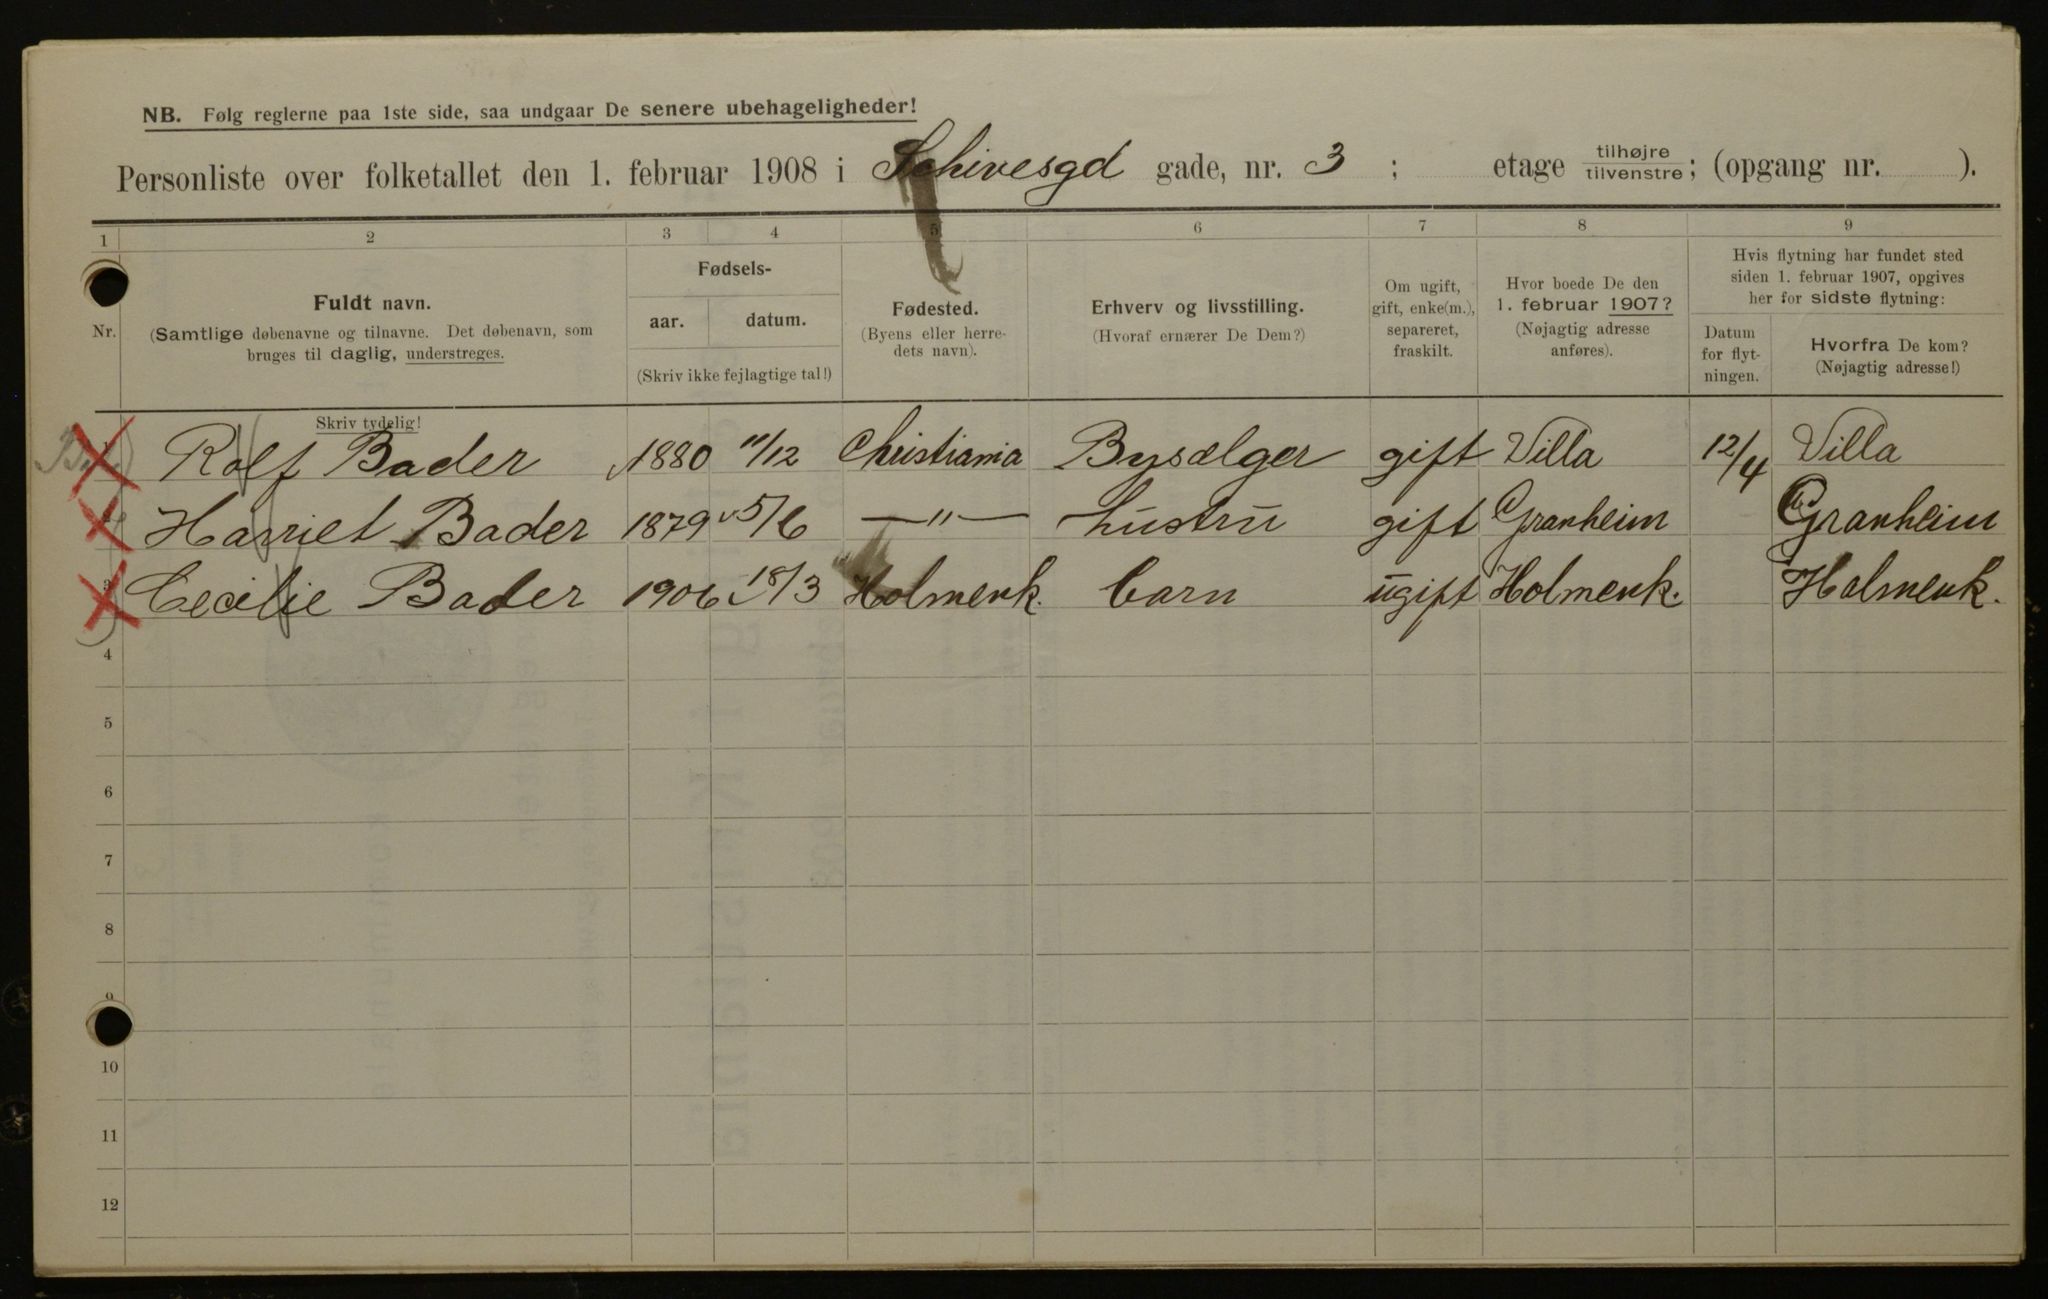 NB. Følg reglerne paa 1ste side, saa undgaar De senere ubehageligheder!
Personliste over folketallet den 1. februar 1908 i Schivesgd gade, nr. 3 ; etage tilhøjre/tilvenstre; (opgang nr. ).
1 2 3 4 5 6 7 8 9
Nr.
Fuldt navn.
(Samtlige døbenavne og tilnavne. Det døbenavn, som
bruges til daglig, understreges.
Skriv tydelig!
Fødsels-
aar. datum.
(Skriv ikke fejlagtige tal!)
Fødested.
(Byens eller herre-
dets navn).
Erhverv og livsstilling.
(Hvoraf ernærer De Dem?)
Om ugift,
gift, enke(m.),
separeret,
fraskilt.
Hvor boede De den
1. februar 1907?
(Nøjagtig adresse
anføres).
Hvis flytning har fundet sted
siden 1. februar 1907, opgives
her for sidste flytning:
Datum
for flyt-
ningen.
Hvorfra De kom?
(Nøjagtig adresse!)
Rolf Bader 1880 11/12 Christiania Bysælger gift Villa 12/4 Villa
Harriet Bader 1879 5/6 —"— hustru gift Granheim Granheim
3 Cecilie Bader 1906 18/3 Holmenk. barn ugift Holmenk. Holmenk.
4
5
6
7
8
9
10
11
12